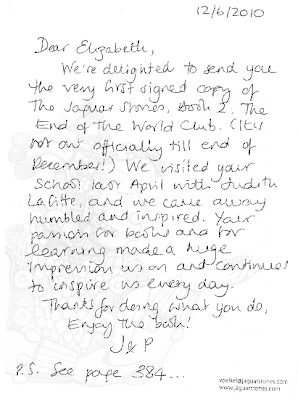 12/6/2010
Dear Elizabeth,
We're delighted to send you
the very first signed copy of
The Jaguar Stones, Book 2. The
End of The World Club. (It's
not out officially till end of
December!) We visited your
School last April with Judith
Lafitte, and we came away
humbled and inspired. Your
passion for books and for
learning made a huge
impression us on and continues
to inspire us every day.
Thanks for doing what you do,
Enjoy the book!
J & P
P.S. See page 384...
voelkel@jaguarstones.com
www.jaguarstones.com